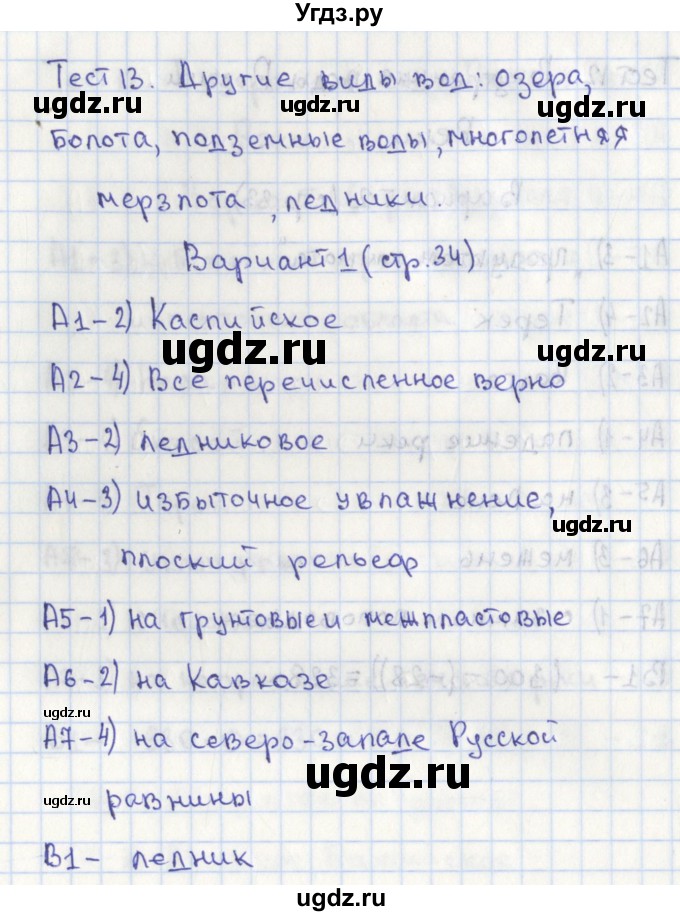 Угдз.ру
Тест 13. Другие виды вод: озера,
болота, подземные воды, многолетная
мерзлота, ледники.
Вариант 1 (стр.34)
А1-2) Каспийское
А2-4) Все перечисленное верно
А3-2) ледниковое
А4-3) избыточное увлажнение,
плоский рельеф
А5-1) на грунтовые и межпластовые
А6-2) на Кавказе
А7-4) на северо-западе Русской
равнины
В1- ледник
ugdz.ru
ugdz.ru
ugdz.ru
ugdz.ru
ugdz.ru
ugdz.ru
ugdz.ru
ugdz.ru
ugdz.ru